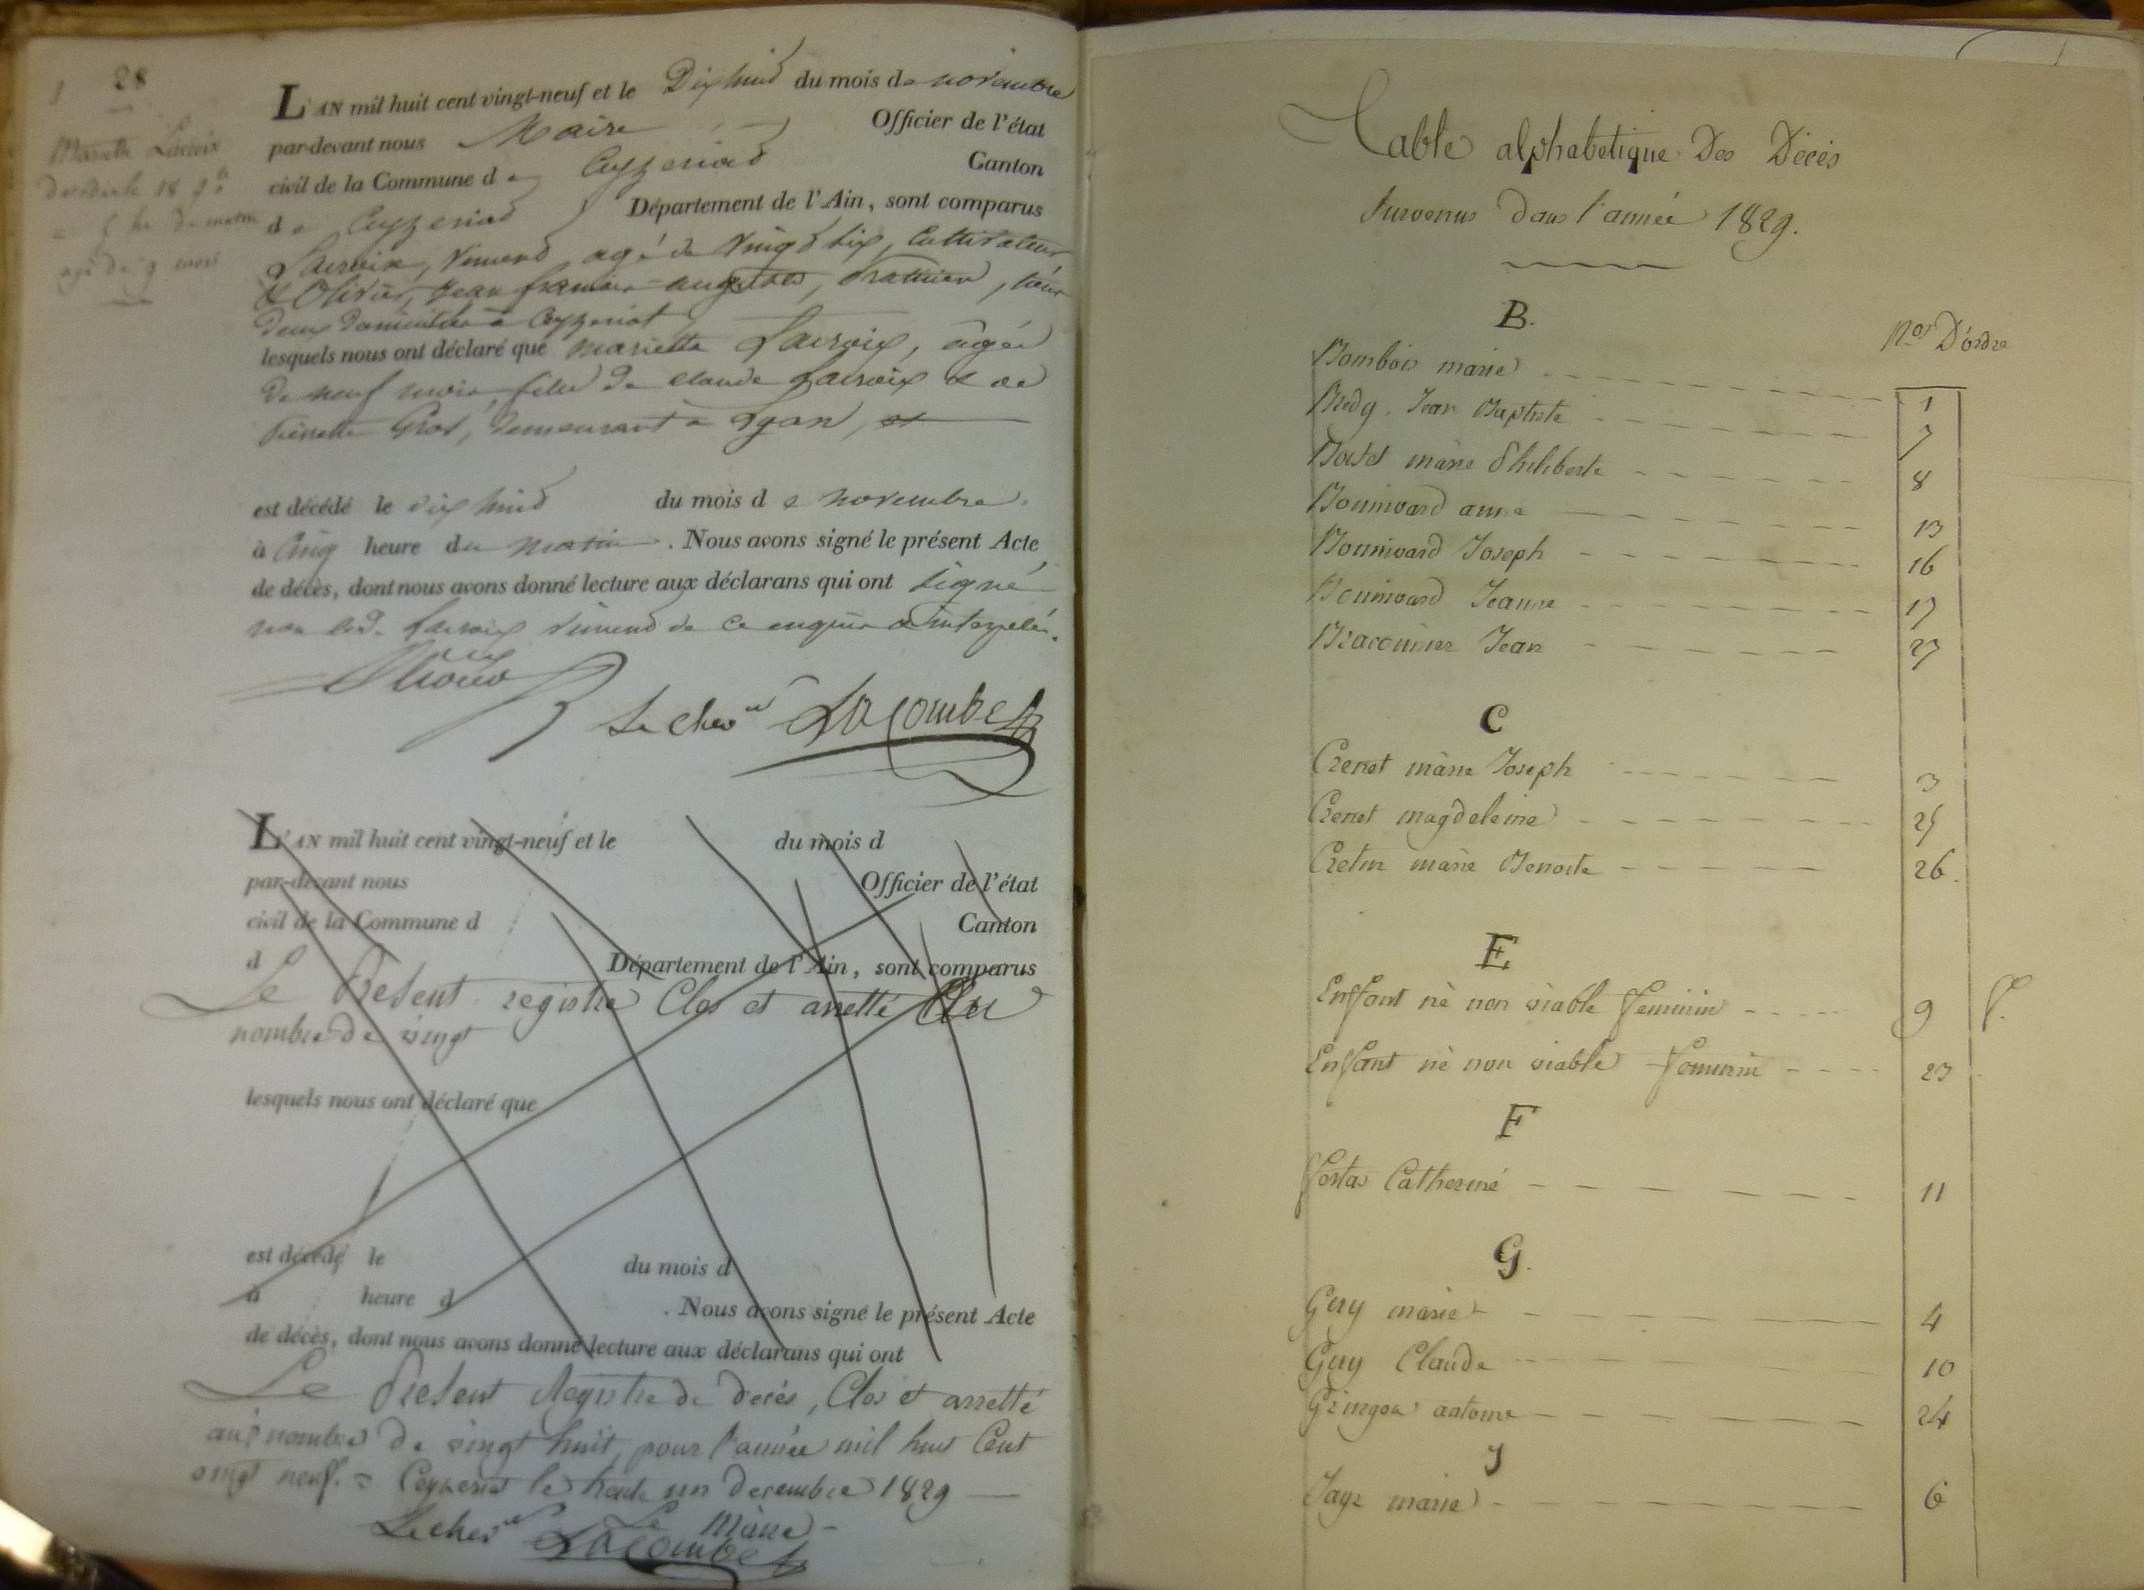 28
Mariette Lacroix
décédée le 18 9bre
à 5 he du matin
agé de 9 mois
L'AN mil huit cent vingt-neuf et le Dix huit du mois de novembre
par-devant nous Maire Officier de l'état
civil de la Commune de Ceyzeriat Canton
de Ceyzeriat Département de l'Ain, sont comparus
Lacroix, Vincent agé de vingt six, Cultivateur
& Olivier, Jean françois-auguste, Praticien, tous
deux domiciliés à Ceyzeriat
lesquels nous ont déclaré que mariette Lacroix, agée
de neuf mois, fille de claude Lacroix & de
Pierrette Gros, demeurant à Lyon, et
est décédé le dix huit du mois de novembre
à Cinq heure du matin. Nous avons signé le présent Acte
de décès, dont nous avons donné lecture aux déclarans qui ont signé
non led. Lacroix Vincent de ce enquis & interpelé.
Le Cher Lacombe
L'AN mil huit cent vingt-neuf et le du mois d
par-devant nous Officier de l'état
civil de la Commune d Canton
d Département de l'Ain, sont comparus
Le Present registre Clos et arretté au
nombre de vingt
lesquels nous ont déclaré que
est décédé le du mois d
à heure d . Nous avons signé le présent Acte
de décès, dont nous avons donné lecture aux déclarans qui ont
Le Present Registre de decès, Clos et arretté
au nombre de vingt huit, pour l'année mil huit Cent
vingt neuf. = Ceyzeriat le trente un decembre 1829
Le Maire
Le cher Lacombe
Table alphabetique Des Décès
survenus dans l'année 1829.
Nos D'ordre
B.
Bombois marie 1
Bredy Jean Baptiste 7
marie Philiberte 8
Bounivard anne 13
Bounivard Joseph 16
Bounivard Jeanne 17
Braconnier Jean 27
C
Crenet marie Joseph 3
Crenet magdeleine 25
Cretin marie Benoite 26.
E
Enffant nè non viable feminin 9 f.
Enffant nè non viable feminin 23
F
Catherine 11
G.
Guy marie 4
Guy Claude 10
Gringoz antoine 24
J
Jayr marie 6